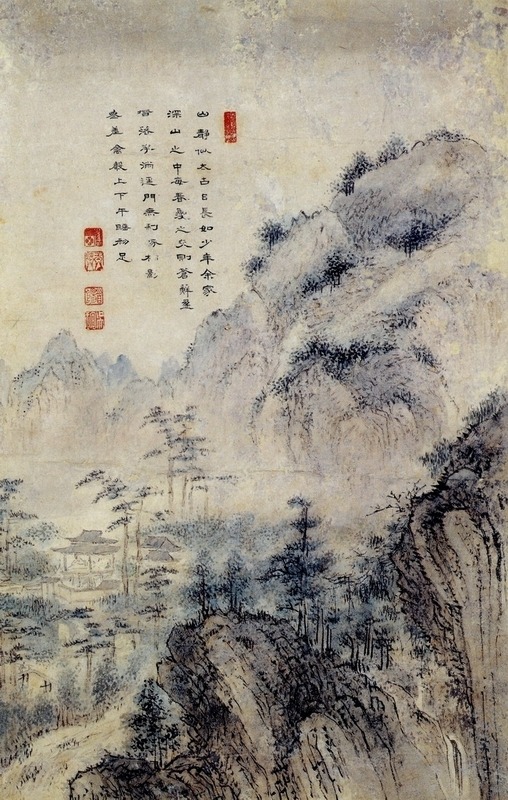 山靜似太古日長如少年余家
深山之中每春夏之交則蒼蘚盈
階落花滿逕門無剝啄松影
參差禽聲上下午睡初足